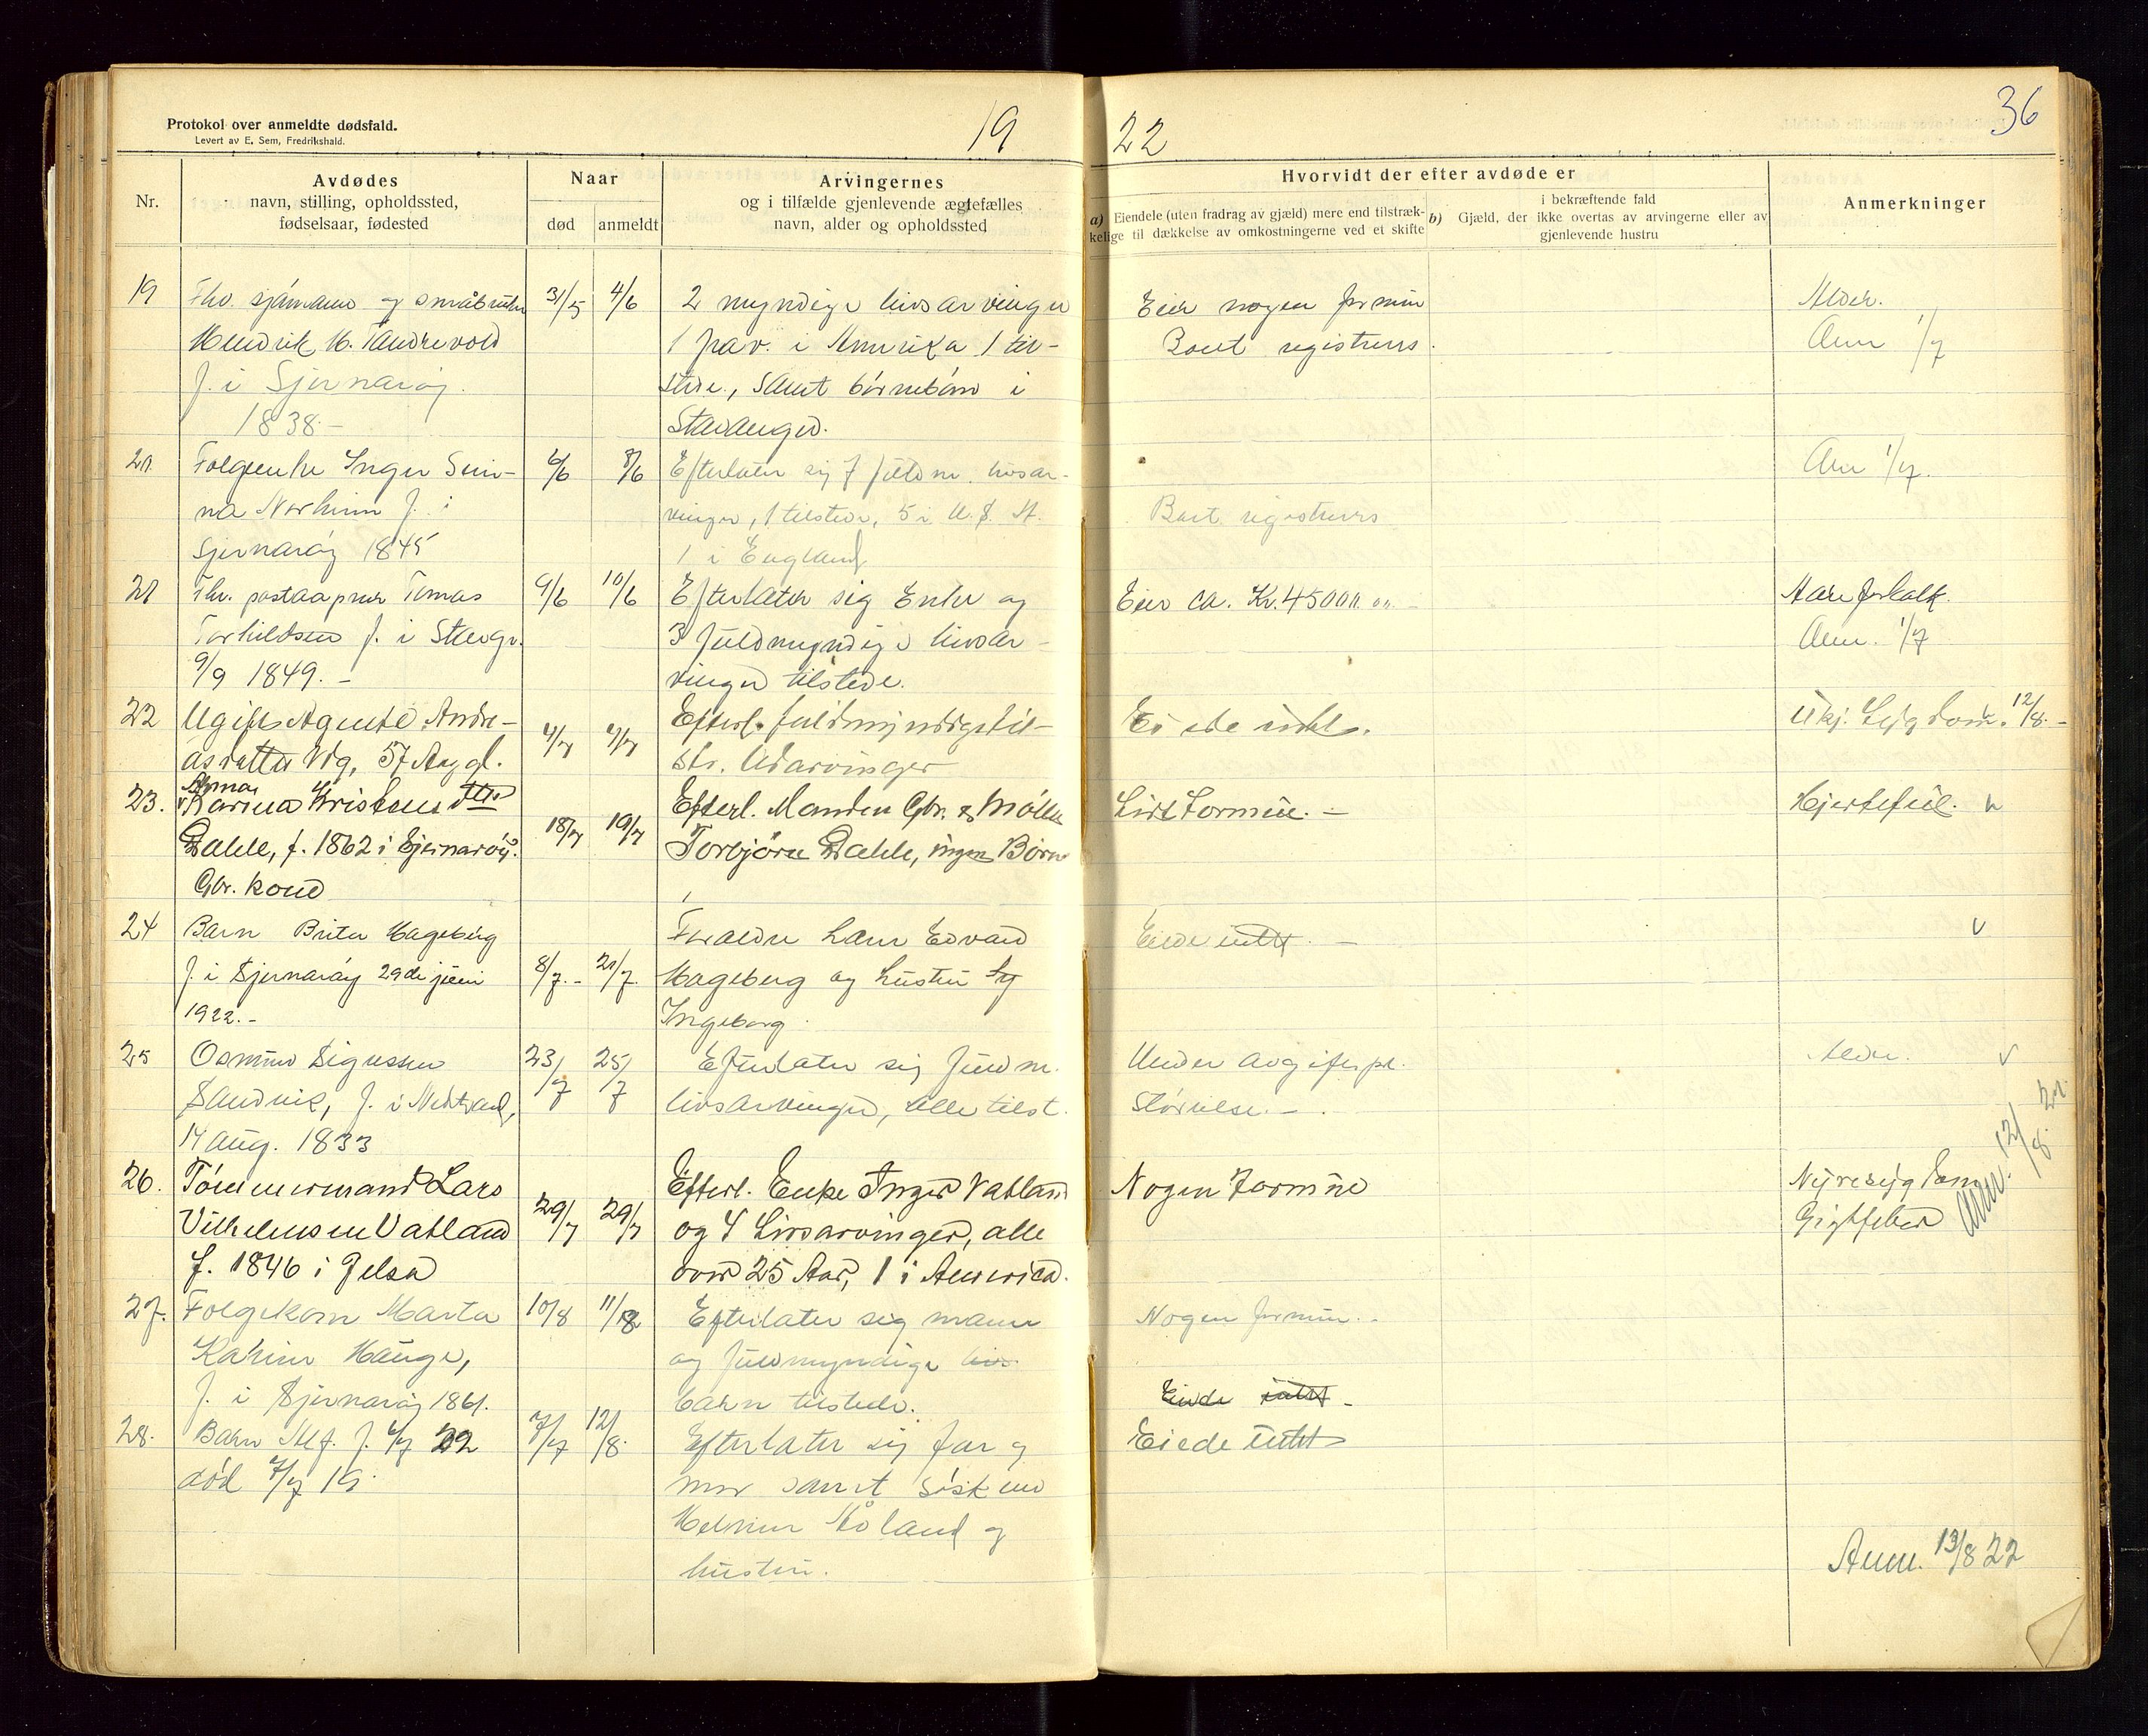 Protokol over anmeldte dødsfald.
Levert av E. Sem, Fredrikshald.
19
22
36
Nr.
Avdødes
navn, stilling, opholdssted,
fødselsaar, fødested
Naar
død
anmeldt
Arvingernes
og i tilfælde gjenlevende ægtefælles
navn, alder og opholdssted
Hvorvidt der efter avdøde er
a) Eiendele (uten fradrag av gjæld) mere end tilstræk-
kelige til dækkelse av omkostningerne ved et skifte
i bekræftende fald
b) Gjæld, der ikke overtas av arvingerne eller av
gjenlevende hustru
Anmerkninger
19 Fhv. sjømann og småbruker 31/5 4/6 2 myndige livsarvinger Eier nogen formue Alder.
Hendrik M. Tandrevold 1 frav. i Amerika 1 til- Boet registreres. Anm 1/7
f. i Sjernarøy. stede, samt børnebørn i
1838- Stavanger.
20. Folgeenke Inger Seri- 6/6 8/6 Efterlater sig 7 fuldm. livsar- Anm 1/7.
na Norheim f. i vinger, 1 tilstede, 5 i U. S. A. Boet registreres
Sjernarøy 1845 1 i England
21 Fhv. postaapner Tomas 9/6 10/6 Efterlater sig Enke og Eier ca. Kr. 45000.00 - Aareforkalk.
Torkildsen f. i Stavgr. 3 fuldmyndige livsar- Anm. 1/7
9/9 1849. - vinger tilstede.
22 Ugift Agnete Andre- 4/7 4/7 Efterl. fuldmyndige til- Eiede intet. Ukj. Sygdom. 12/8. -
asdatter Vig, 57 Aar gl. st. Udarvinger
23. Anna
Karina Kristensdtr 18/7 19/7 Efterl. Manden Gbr. & Møller Lidt Formue. - Hjertefeil. v
Dahle, f. 1862 i Sjernarøy. Torbjørn Dahle, ingen Børn
Gbr. kone
24 Barn Brita Hageberg Foraldre Lars Edvard Eiede intet. - v
f. i Sjernarøy 29de juni 8/7.- 21/7. Hageberg og hustru
1922.- Ingeborg.
25 Osmund Sigvessen 23/7 25/7 Efterlater sig fuldm. Under avgiftspl. Aldr. v
Sandvik, f. i Nedstrand, livsarvinger, alle tilst. størrelse. -
14 aug. 1833
26. Tømmermand Lars 29/7 29/7 Efterl. Enke Inger Vatland Nogen Formue Nyresygdom
Vilhelmsen Vatland og 4 Livsarvinger, alle Gigtfeber Anm. 12/8 22
f. 1846 i Jelsa over 25 Aar, 1 i America.
27. Folgekone Marta 10/8 11/8 Efterlater sig mann Nogen formue. -
Katrine Hauge, og fuldmyndige livs.
f. i Sjernarøy 1861. barn tilstede. Eiede intet -
28. Barn f. 4/7 22 7/7 12/8. Efterlater sig far og Eiede intet
død 7/7 19. mor samt søsken
Håland og
hustru.
Anm. 13/8 22